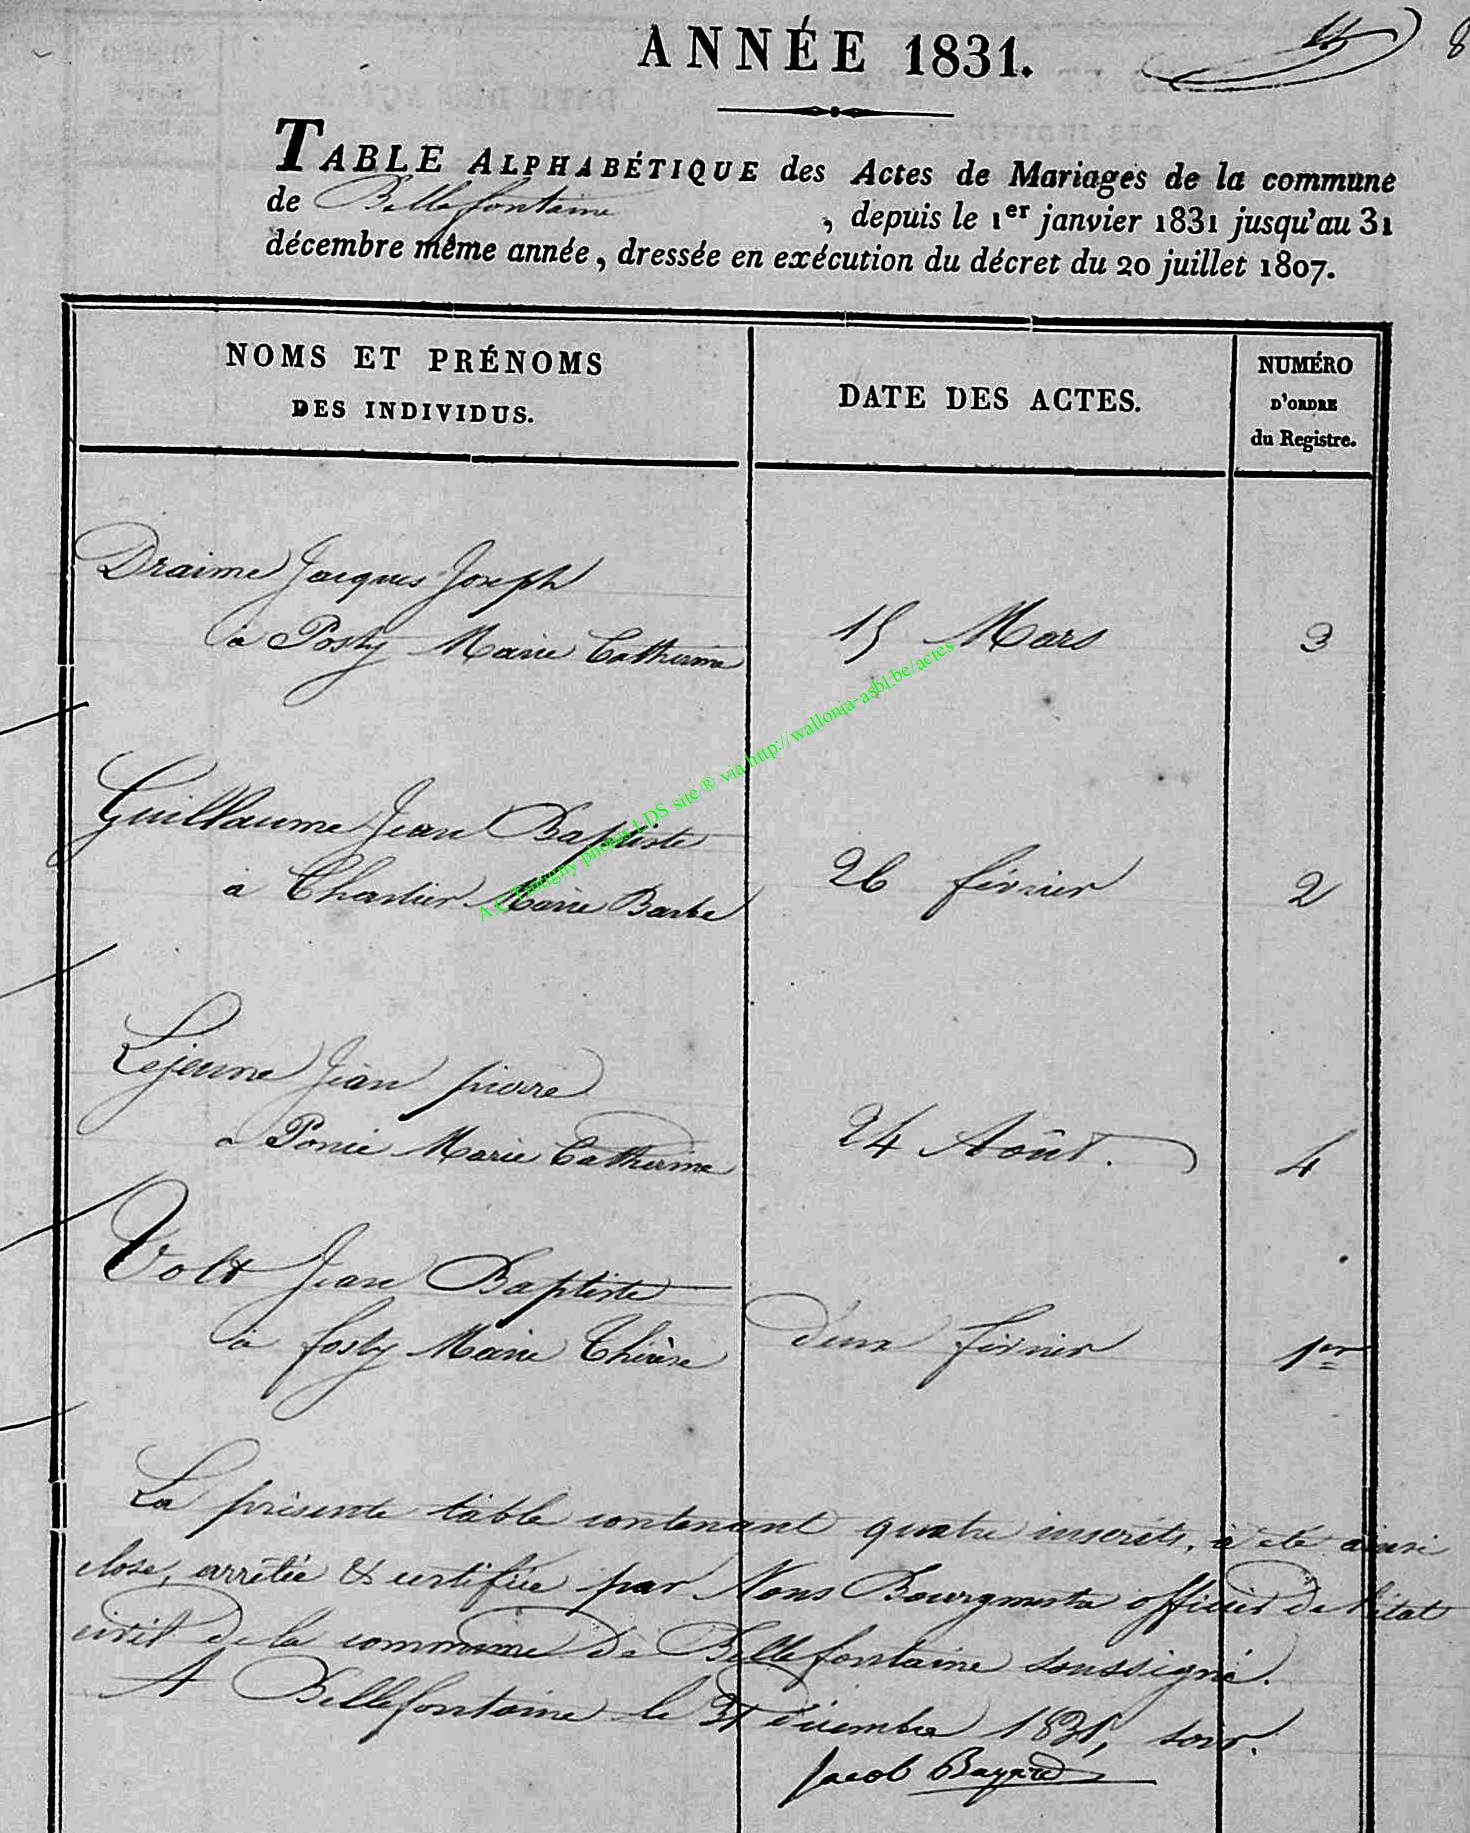 ANNÉE 1831.
8
TABLE ALPHABÉTIQUE des Actes de Mariages de la commune
de Bellefontaine , depuis le 1er janvier 1831 jusqu'au 31
décembre même année, dressée en exécution du décret du 20 juillet 1807.
NOMS ET PRÉNOMS
DES INDIVIDUS.
DATE DES ACTES.
NUMÉRO
D'ORDRE
du Registre.
Draime Jacques Joseph
à Posty Marie Catherine 15 Mars 3
Guillaume Jean Baptiste
à Charlier Marie Barbe 26 février 2
Lejeune Jean pierre
a Ponié Marie Catherine 24 Août. 4
Jean Baptiste
à fosty Marie Thérèse deux février 1er
La présente table contenant quatre inscrits, à été ainsi
close, arrêtée & certifiée par Nous Bourgmestre officier de l'état
civil de la commune de Bellefontaine soussigné.
A Bellefontaine le 31 décembre 1831, soir.
Jacob Bayard
A.C. Tintigny photos LDS site ® via http://wallonia-asbl.be/actes